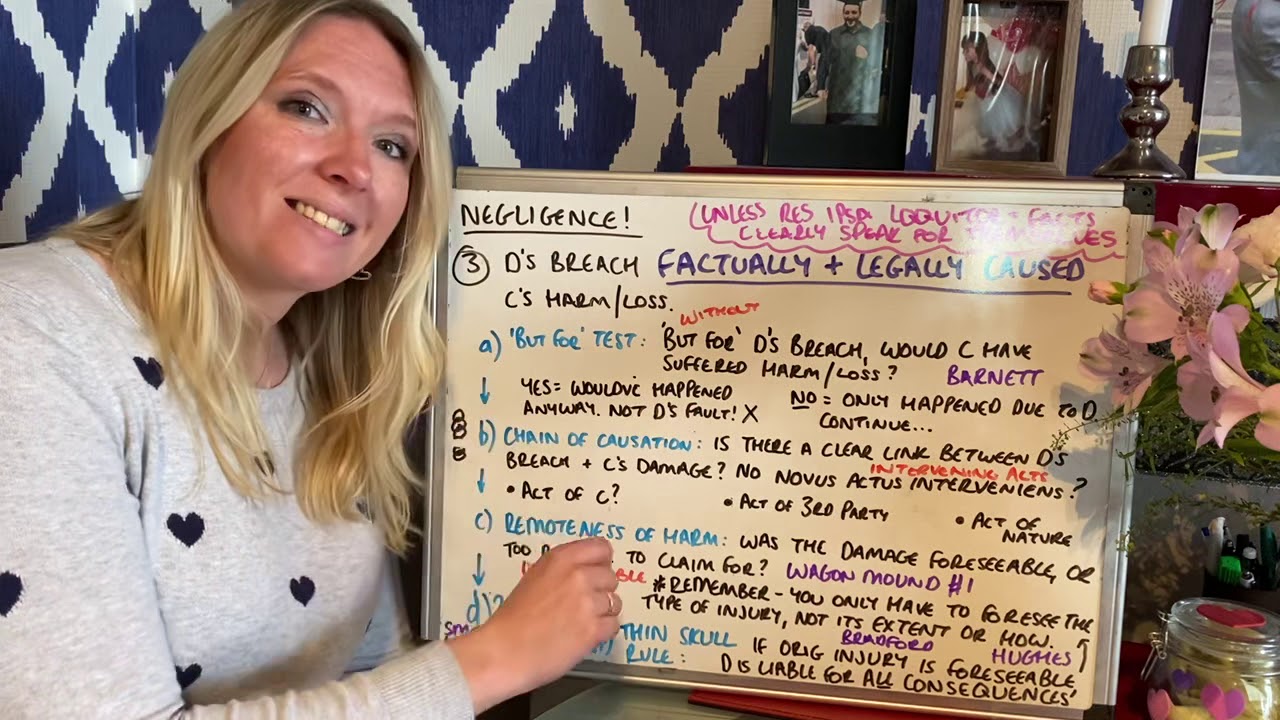 NEGLIGENCE!
(UNLESS RES IPSA LOQUITOR = FACTS
CLEARLY SPEAK FOR THEMSELVES
③ D'S BREACH FACTUALLY + LEGALLY CAUSED
C'S HARM/LOSS.
WITHOUT
a) 'BUT FOR' TEST: 'BUT FOR' D'S BREACH, WOULD C HAVE
SUFFERED HARM/LOSS? BARNETT
YES = WOULD'VE HAPPENED
ANYWAY. NOT D'S FAULT! X
NO = ONLY HAPPENED DUE TO D
CONTINUE...
b) CHAIN OF CAUSATION: IS THERE A CLEAR LINK BETWEEN D'S
INTERVENING ACTS
BREACH + C'S DAMAGE? NO NOVUS ACTUS INTERVENIENS?
• ACT OF C? • ACT OF 3RD PARTY • ACT OF
NATURE
c) REMOTENESS OF HARM: WAS THE DAMAGE FORESEEABLE, OR
TOO TO CLAIM FOR? WAGON MOUND #1
*REMEMBER - YOU ONLY HAVE TO FORESEE THE
TYPE OF INJURY, NOT ITS EXTENT OR HOW.
BRADFORD HUGHES
d) THIN SKULL IF ORIG INJURY IS FORESEEABLE
RULE: D IS LIABLE FOR ALL CONSEQUENCES'